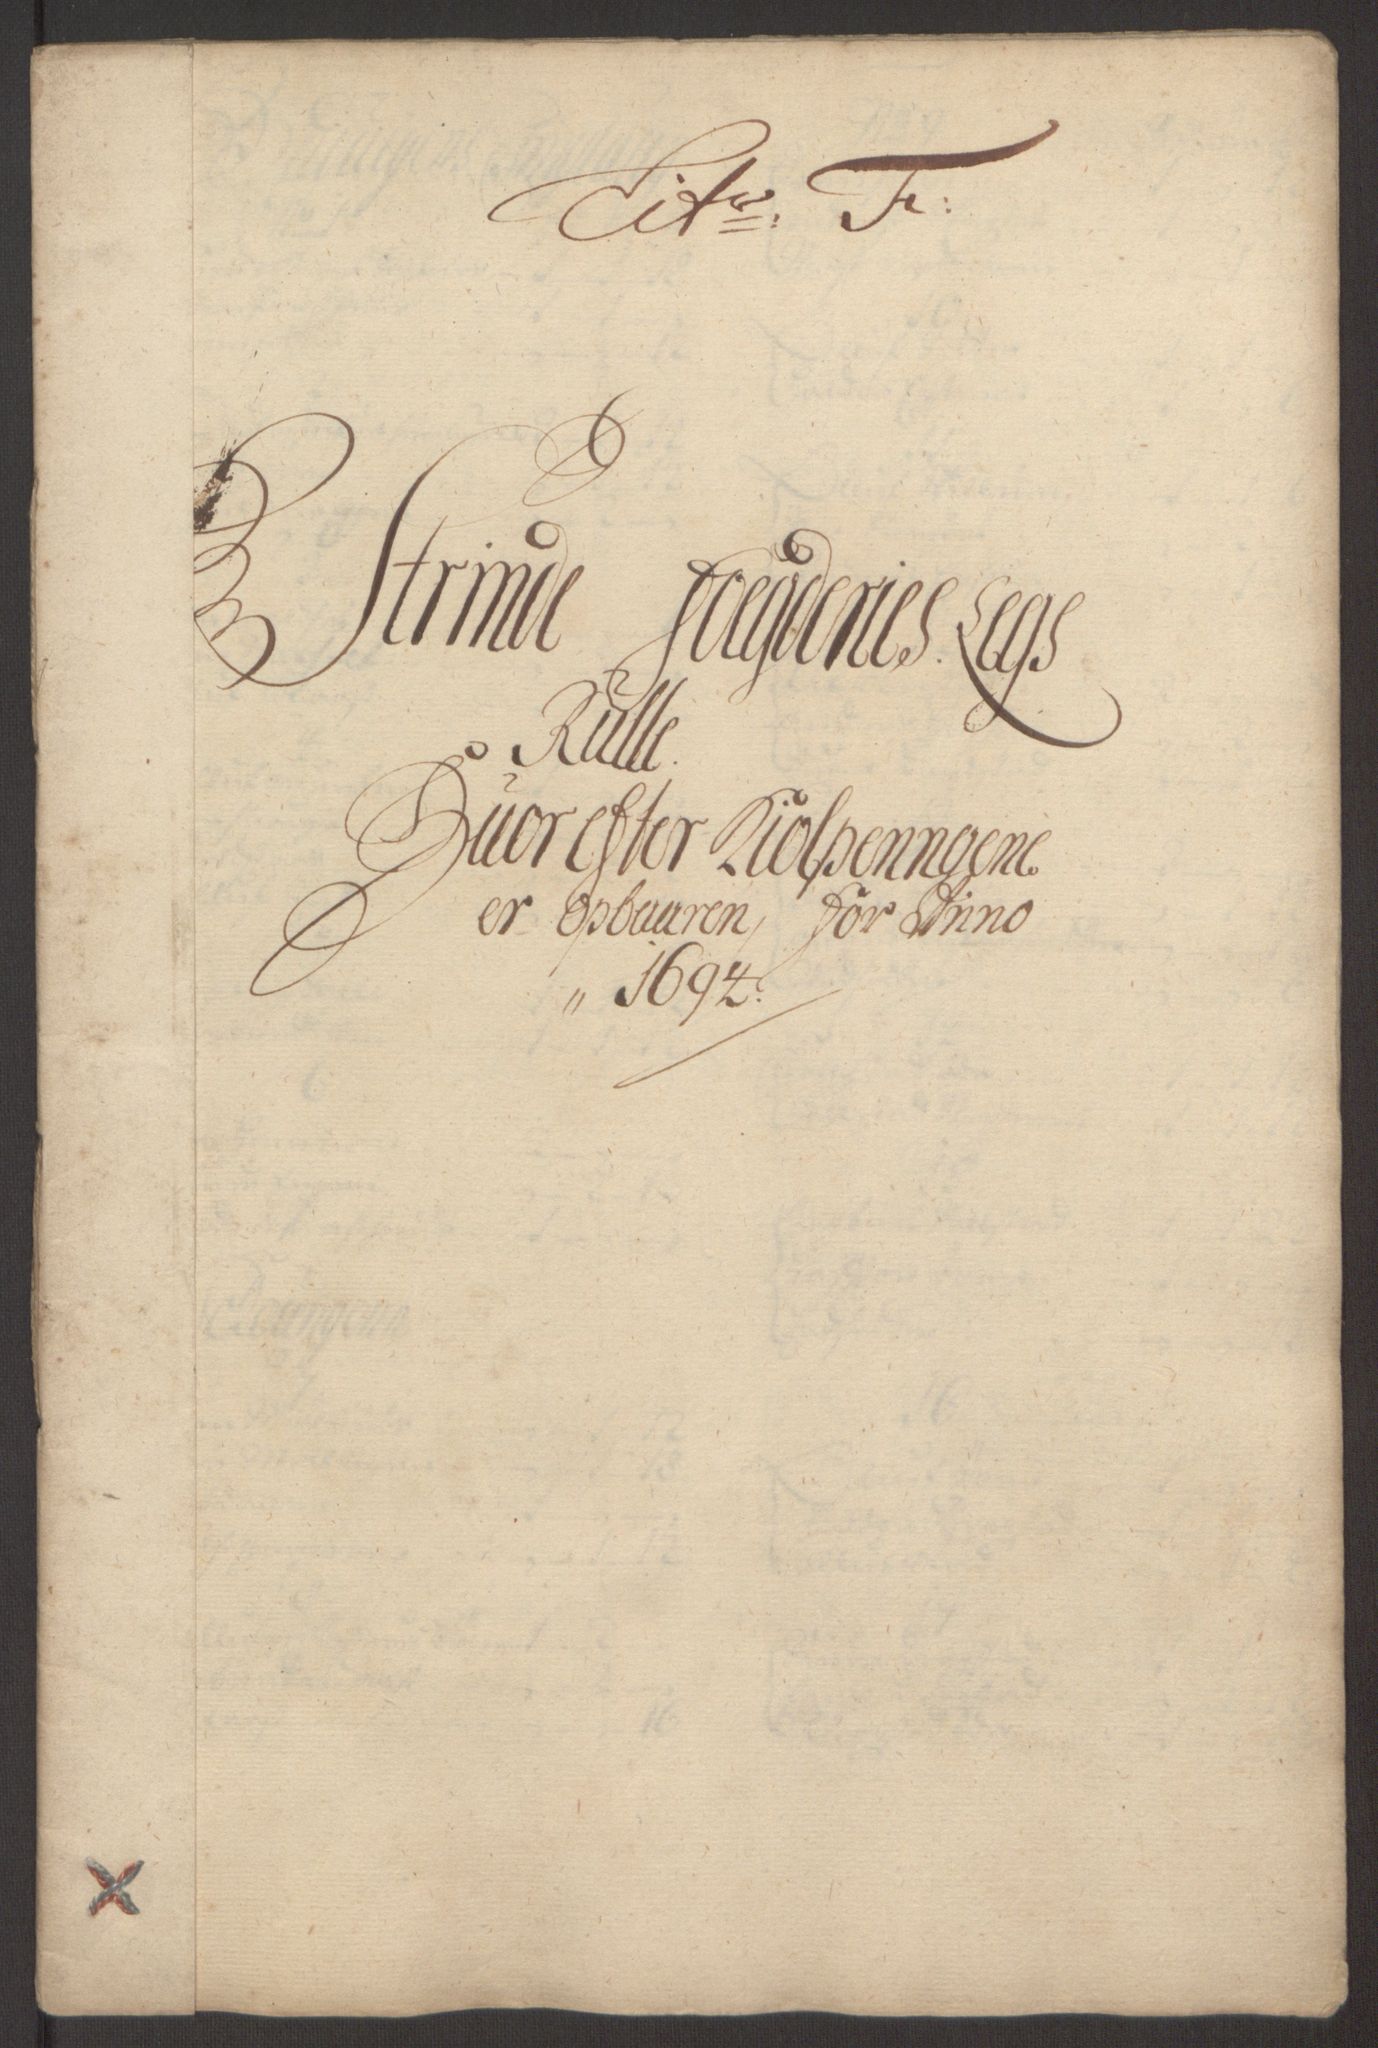 Litr: F:
Strinde Foegderies Legs
Rulle.
Huorefter Kiolpenngene
er opbaaren, for Anno
" 1694: